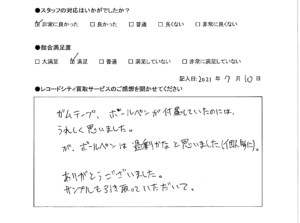 ●スタッフの対応はいかがでしたか?
☑非常に良かった □良かった □普通 □良くない □非常に良くない
●総合満足度
□大満足 ☑満足 □普通 □満足していない □非常に満足していない
記入日:2021年 7月 10日
●レコードシティ買取サービスのご感想を聞かせてください
ガムテープ、ボールペンが付属していたのには、
うれしく思いました。
が、ボールペンは過剰かなと思いました(個人的に)。
ありがとうございました。
サンプルも引き取っていただいて。